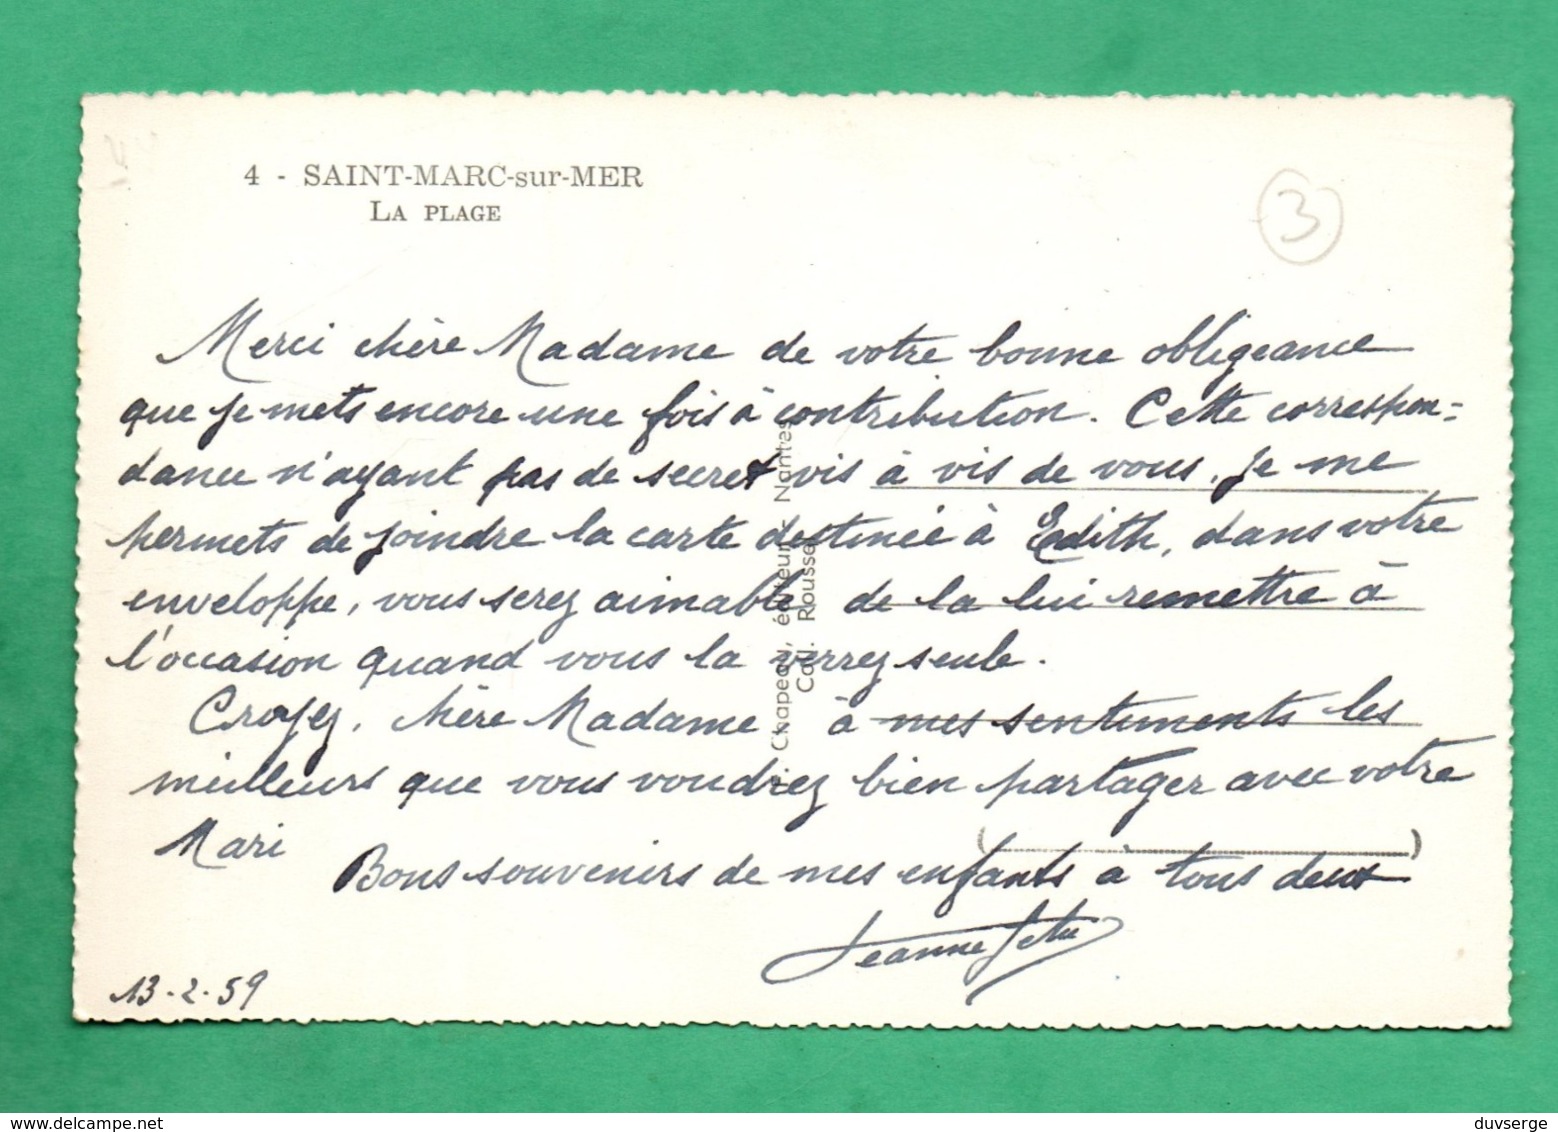 4 - SAINT-MARC-sur-MER
LA PLAGE
3
Merci chère Madame de votre bonne obligeance
que je mets encore une fois à contribution. Cette correspon=
dance n'ayant pas de secret vis à vis de vous, je me
permets de joindre la carte destinée à Edith, dans votre
enveloppe, vous serez aimable de la lui remettre à
l'occasion quand vous la verrez seule.
Croyez, chère Madame à mes sentiments les
meilleurs que vous voudrez bien partager avec votre
Mari
Bons souvenirs de mes enfants à tous deux
Jeanne
13-2-59
Chapeau, éditeur, Nantes
Coll. Rousse
duvserge